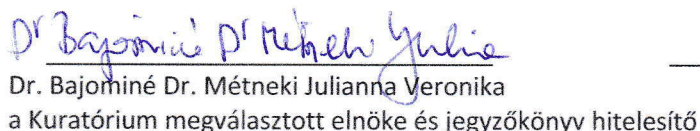 Dr Bajominé Dr Métneki Julia
Dr. Bajominé Dr. Métneki Julianna Veronika
a Kuratórium megválasztott elnöke és jegyzőkönyv hitelesítő